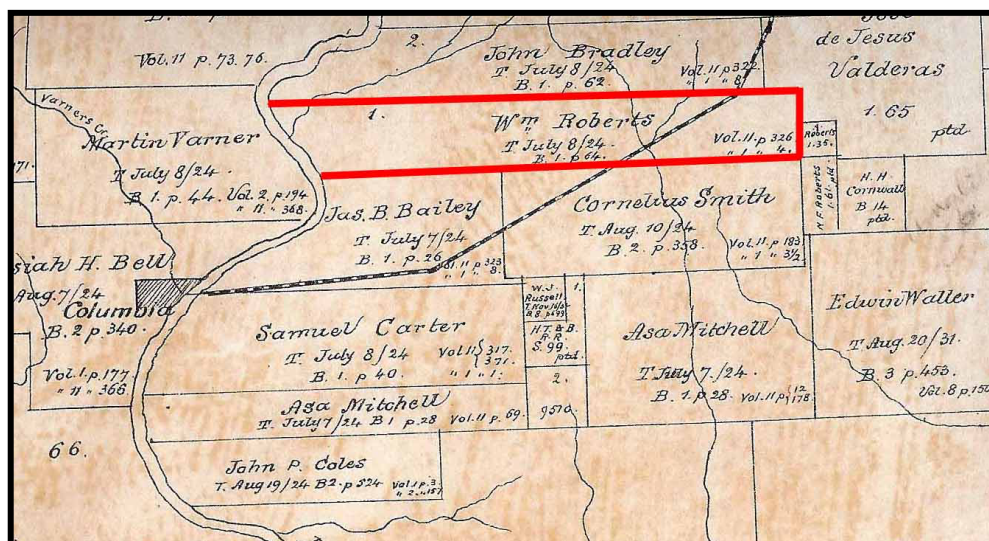 Vol. 11 p. 73. 76.
2.
John Bradley
T July 8/24
B. 1. p. 62.
Vol. 11 p 322.
" 1 " 8
de Jesus
Valderas
1. 65
ptd
Varners Cr.
Martin Varner
T July 8/24
B. 1. p. 44. Vol. 2. p. 194
" 11. " 368.
71.
1.
Wm Roberts
T July 8/24.
B. 1. p. 64.
Vol. 11. p 326
" 1 " 4.
Roberts
1.35.
N. F. Roberts
1.61. ptd
H. H.
Cornwall
B 14
ptd.
Jas. B. Bailey
T. July 7/24
B. 1. p. 26
Vol. 11. p 323
" 1 " 8.
Cornelius Smith
T. Aug. 10/24
B. 2. p. 358.
Vol. 11. p 183
" 1 " 3½
siah H. Bell
Aug. 7/24
Columbia
B. 2 p. 340.
Vol. 1. p. 177.
" 11 " 366.
Samuel Carter
T. July 8/24
B. 1. p 40.
Vol. 11 { 317.
371.
" 1 " 1.
W. J.
Russell
T. Nov. 16/31
B. 8. p. 99
1.
H. T. & B.
R. R.
S. 99.
ptd.
2.
9510.
Asa Mitchell
T July 7./24.
B. 1. p 28. Vol. 11 p { 12
178
Edwin Waller
T Aug. 20/31.
B. 3 p. 453.
Vol. 8 p. 150
Asa Mitchell
T. July 7/24 B 1 p. 28 Vol. 11 p 69.
66.
John P. Coles
T. Aug 19/24 B 2. p 524
Vol. 1 p. 3.
" 2. " 157